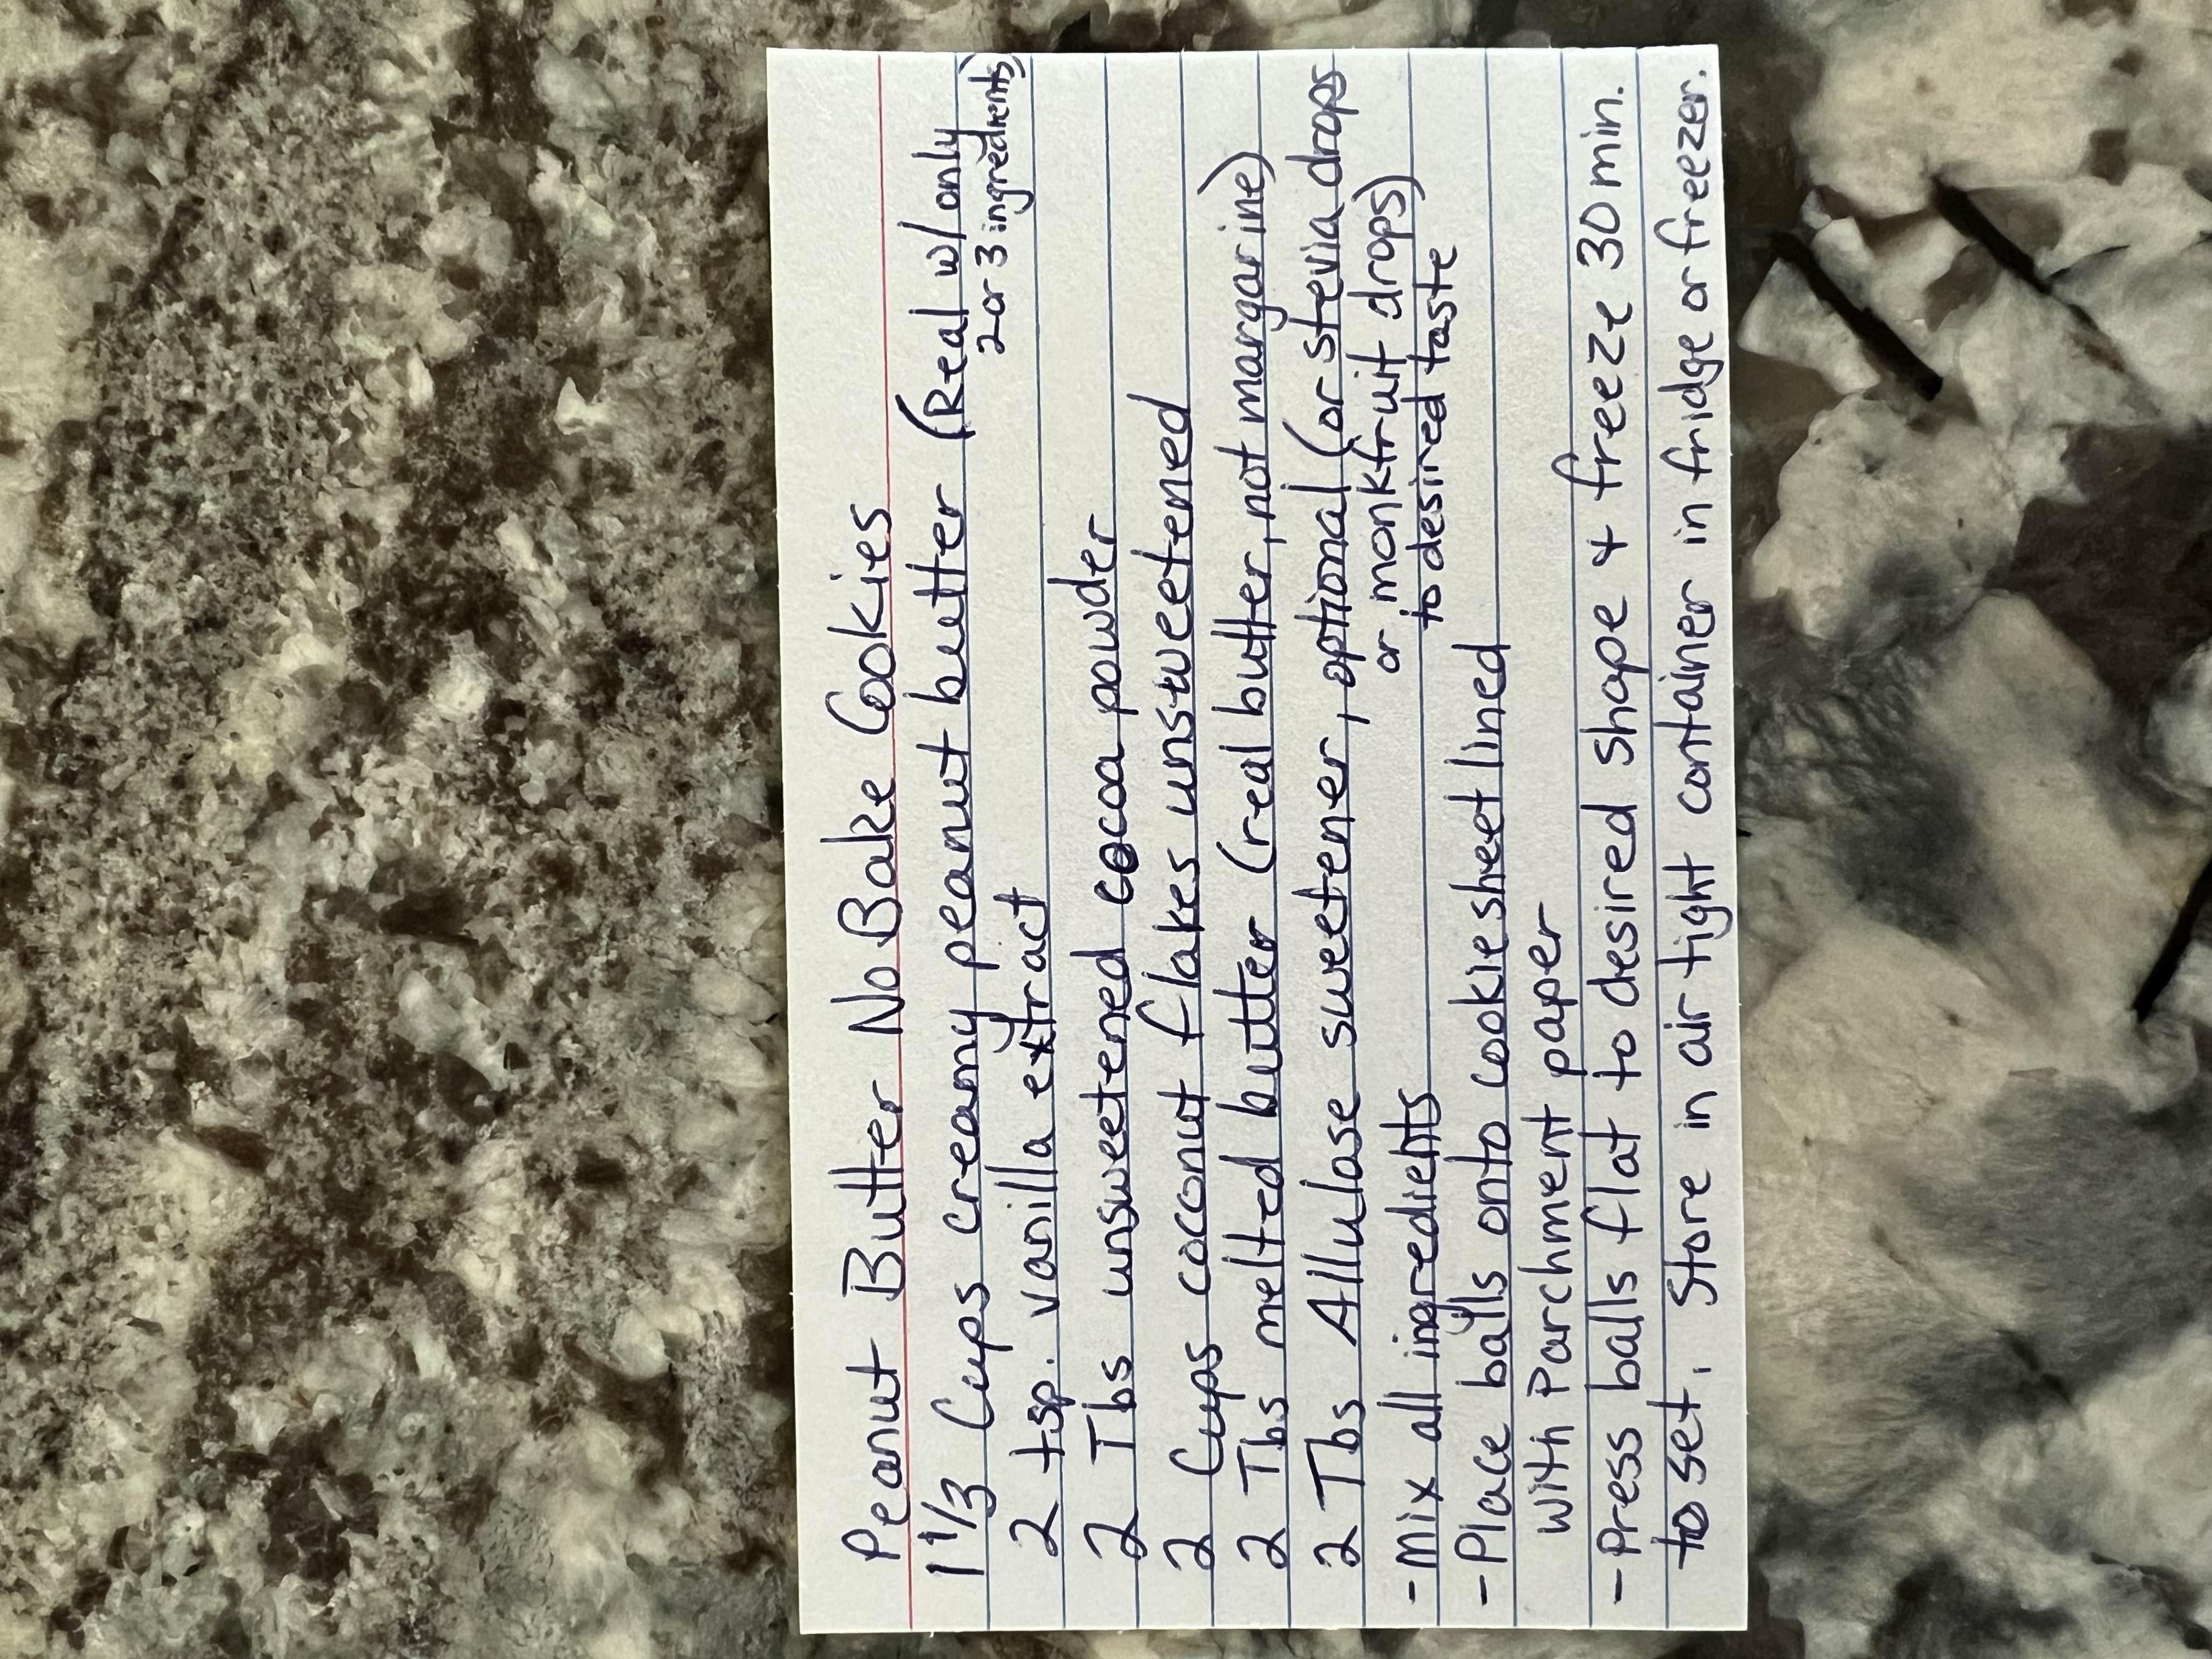 Peanut Butter No Bake Cookies
1 1/3 Cups creamy peanut butter (Real w/ only
2 or 3 ingredients)
2 tsp. vanilla extract
2 Tbs unsweetened cocoa powder
2 Cups coconut flakes unsweetened
2 Tbs melted butter (real butter, not margarine)
2 Tbs Allulose sweetener, optional (or stevia drops
or monkfruit drops)
to desired taste
- Mix all ingredients
- Place balls onto cookie sheet lined
with Parchment paper
- Press balls flat to desired shape + freeze 30 min.
to set. Store in air tight container in fridge or freezer.